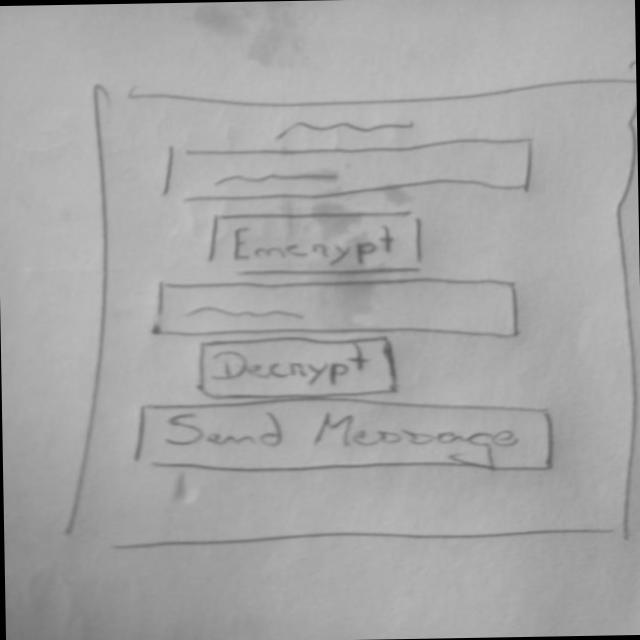 Emcrypt
Decrypt
Send Message